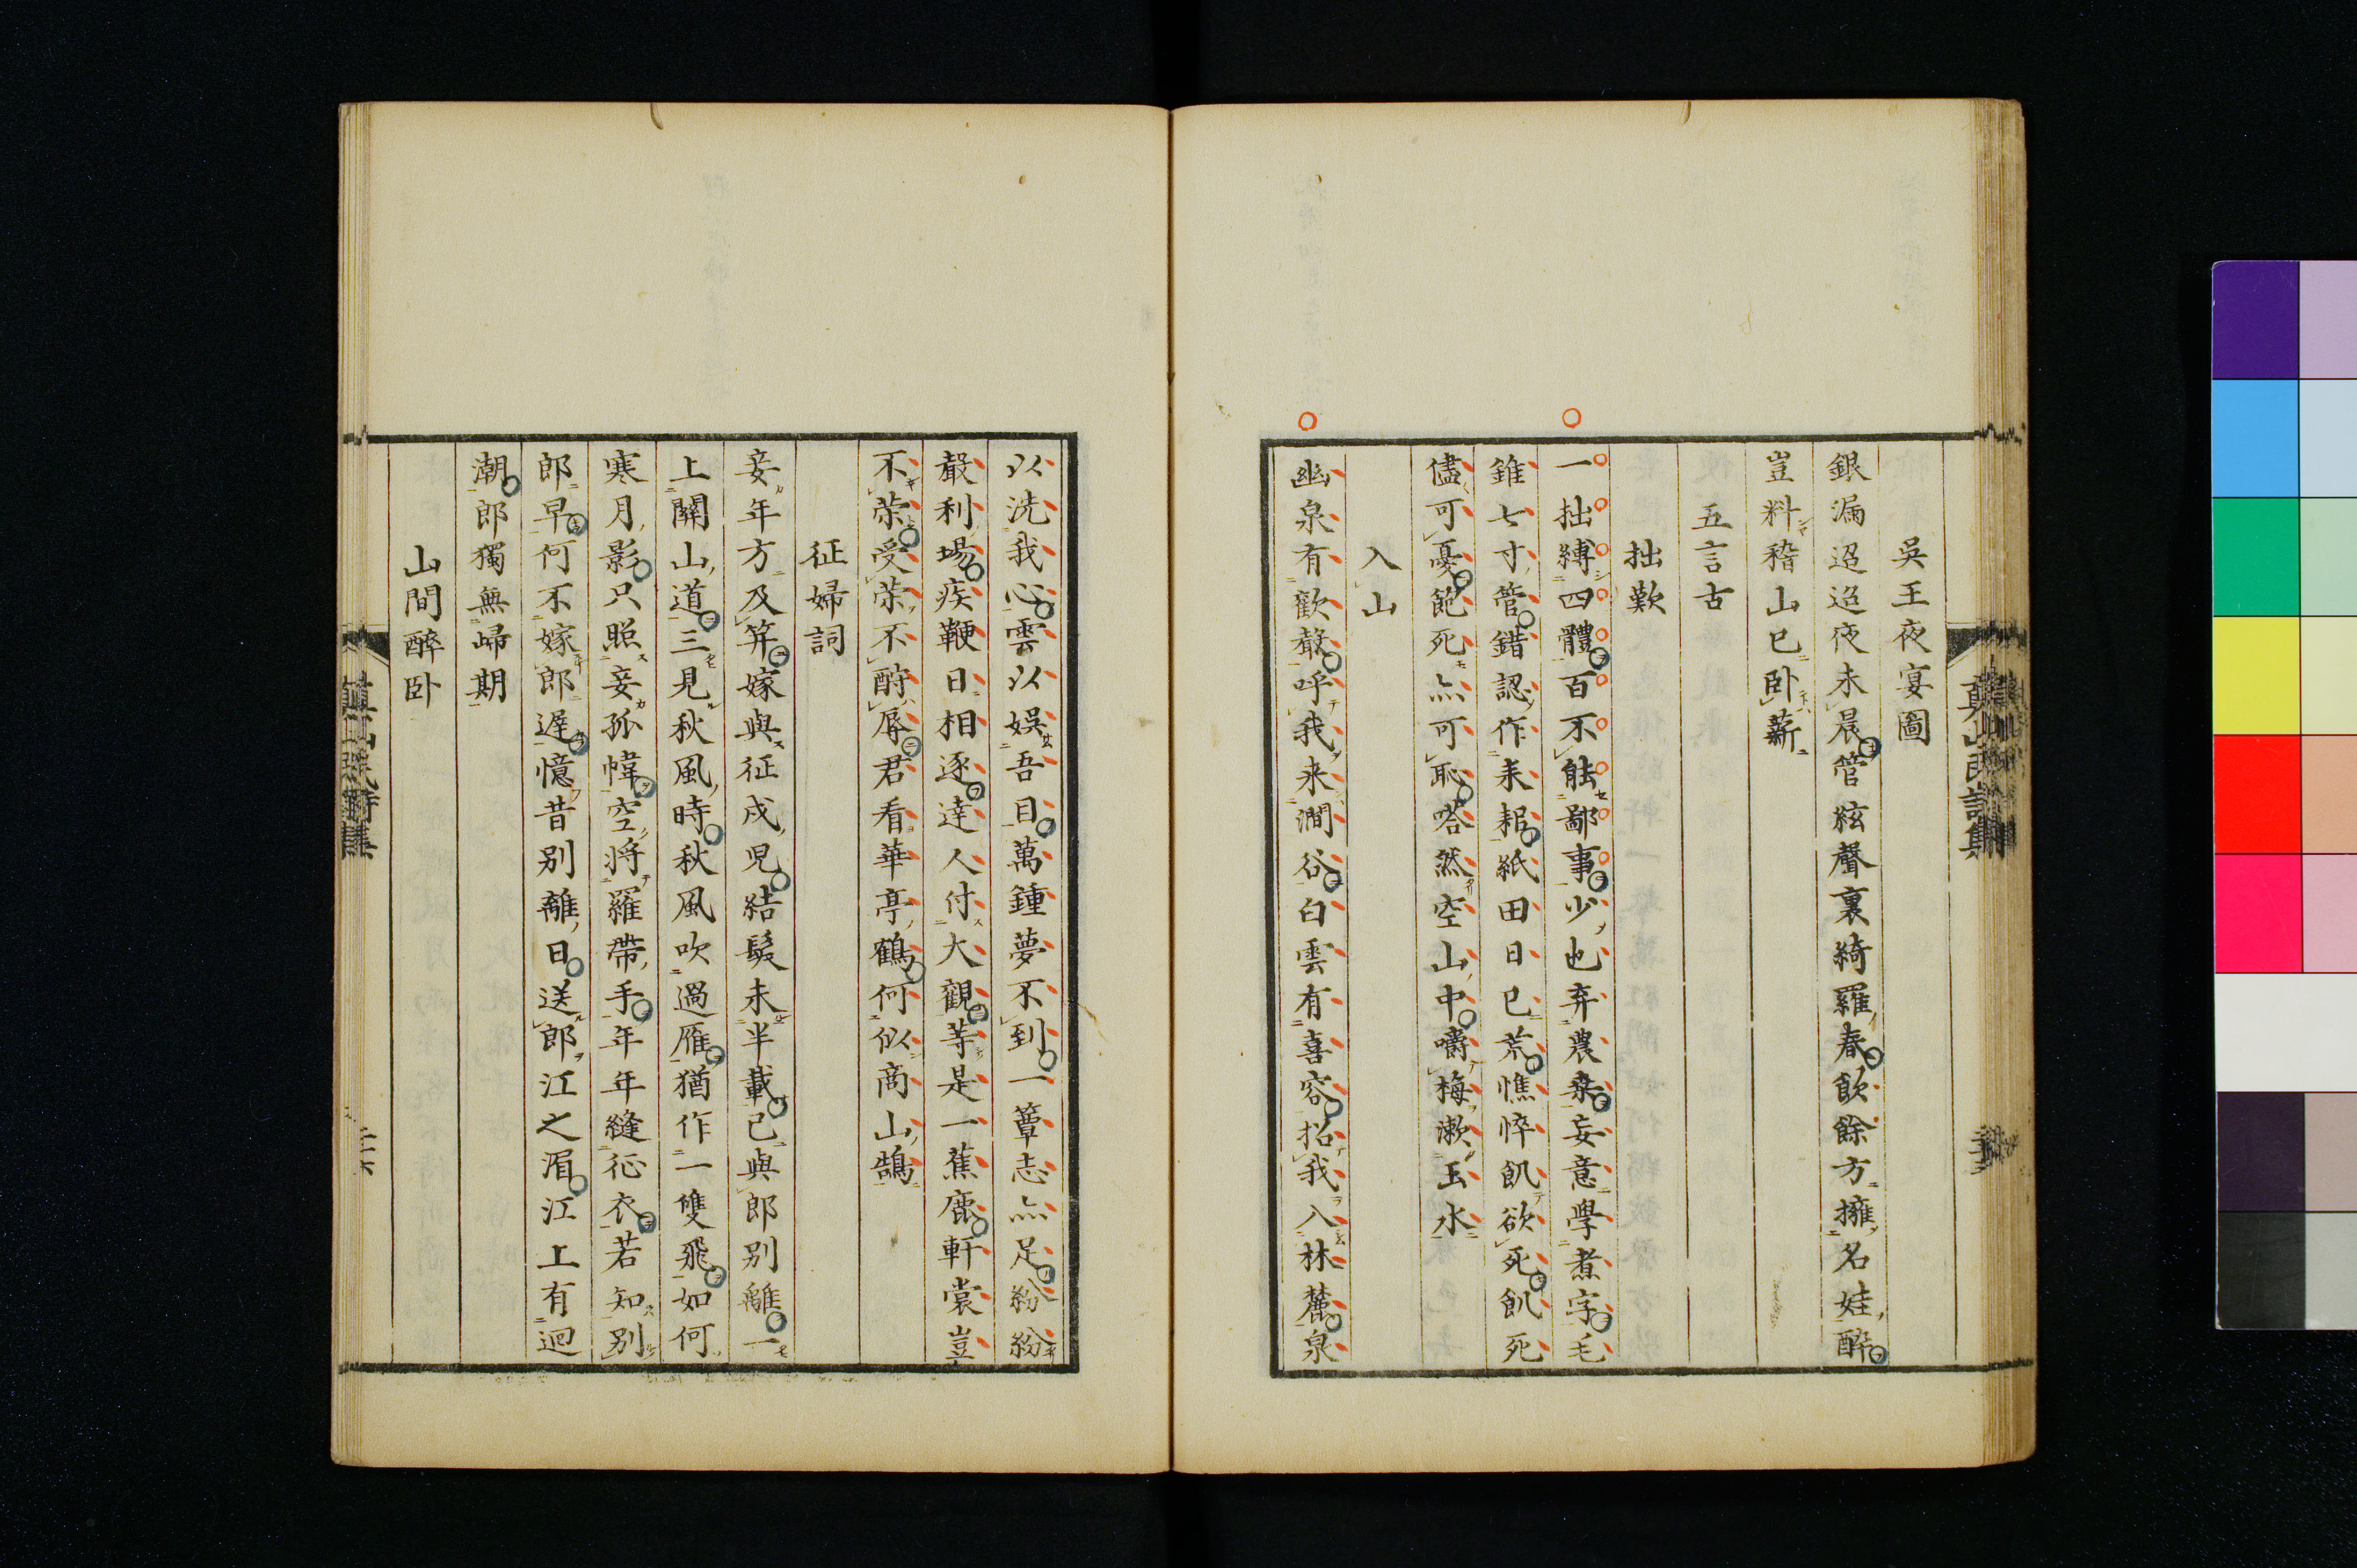 吳王夜宴圖
銀漏迢迢夜未晨管絃聲裏綺羅春飲餘方擁名娃醉
豈料稽山已卧薪
五言古
拙歎
一拙縛四體百不能鄙事少也弃農桒妄意學煮字毛
錐七寸管錯認作耒耜紙田日已荒憔悴飢欲死飢死
儘可憂飽死亦可恥嗒然空山中嚼梅漱玉水
入山
幽泉有歡聲呼我来澗谷白雲有喜容招我入林麓泉
以洗我心雲以娛吾目萬鍾夢不到一簞志亦足紛紛
聲利場疾鞭日相逐達人付大觀等是一蕉鹿軒裳豈
不荣受荣不酧辱君看華亭鶴何似商山鵠
征婦詞
妾年方及笄嫁與征戍児結髮未半載已與郎別離一
上關山道三見秋風時秋風吹過雁猶作一雙飛如何
寒月影只照妾孤幃空將羅帶手年年縫征衣若知別
郎早何不嫁郎遲憶昔別離日送郎江之湄江上有迴
潮郎獨無歸期
山間醉卧